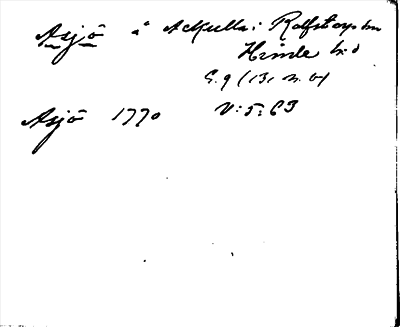 Asjö å Ackulla i Rolfstorps sn
Himle hd
G. 9 (13,
Asjö 1770 V:5:63